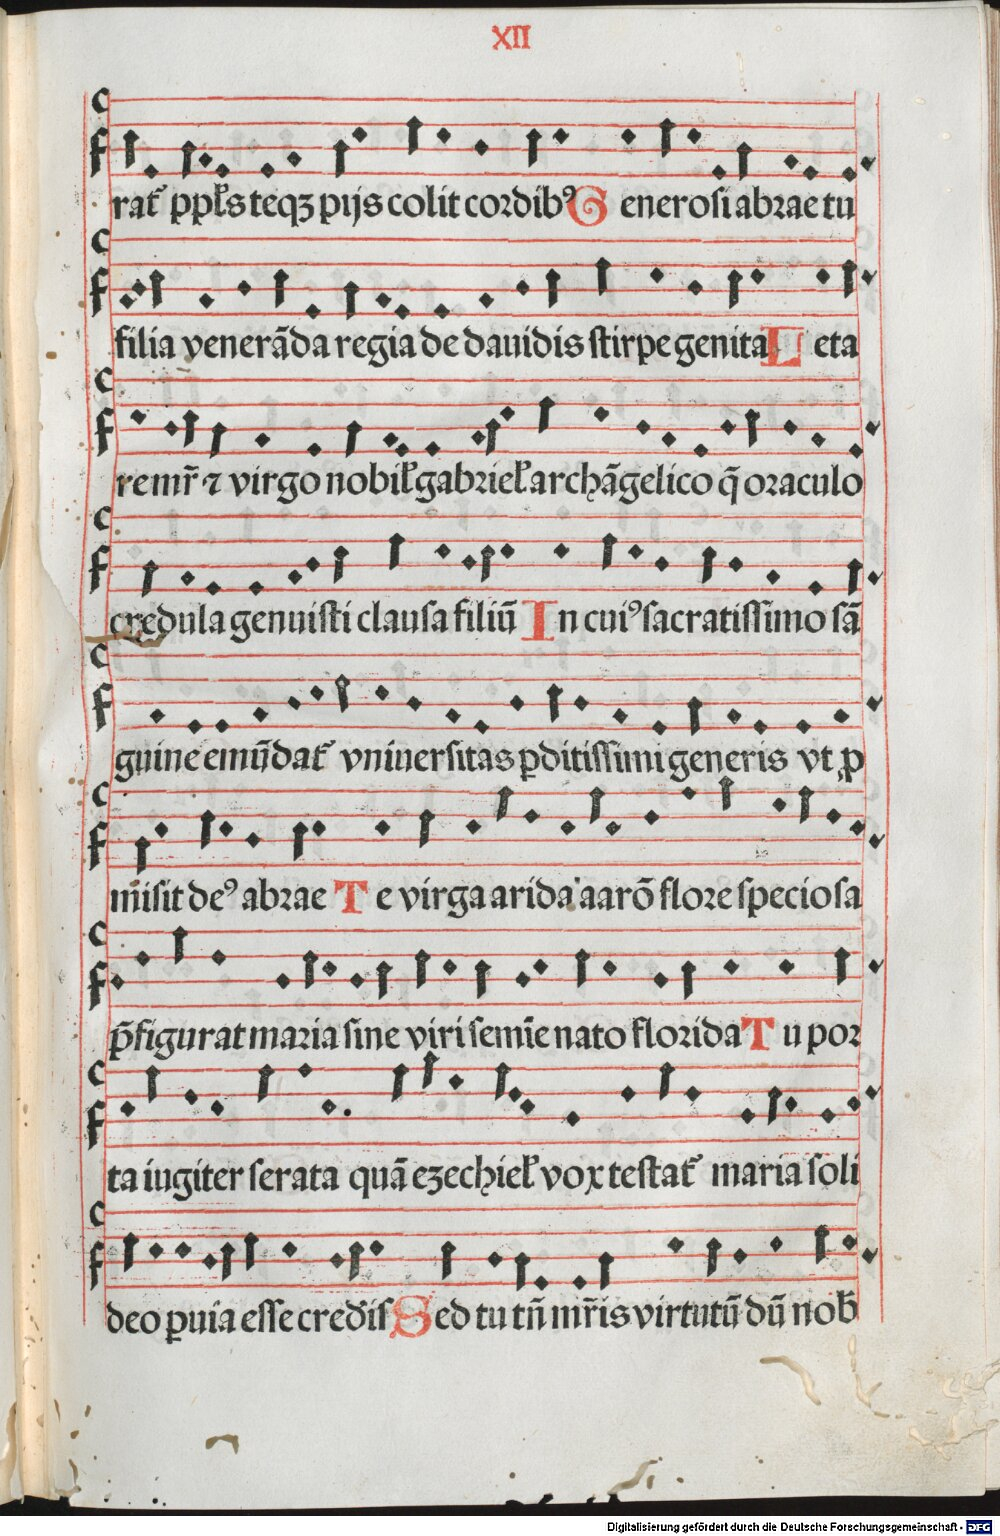 XII
rat᷑ ppl̃s teqꝫ pijs colit cordib⁹ G enerosi abrae tu
filia venerãda regia de dauidis stirpe genita L eta
remr̃ ⁊ virgo nobil̃ gabriel̃ archãgelico q̃ oraculo
credula genuisti clausa filiũ I n cui⁹ sacratissimo sã
guine emũdat᷑ vniuersitas ꝑditissimi generis vt ꝓ
mĩsit de⁹ abrae T e virga arida aarõ flore speciosa
p̃figurat maria sine viri semĩe nato florida T u por
ta iugiter serata quã ezechiel̃ vox testat᷑ maria soli
deo ꝑuia esse credis S ed tu tñ mr̃is virtutũ dũ nob̃
Digitalisierung gefördert durch die Deutsche Forschungsgemeinschaft - DFG